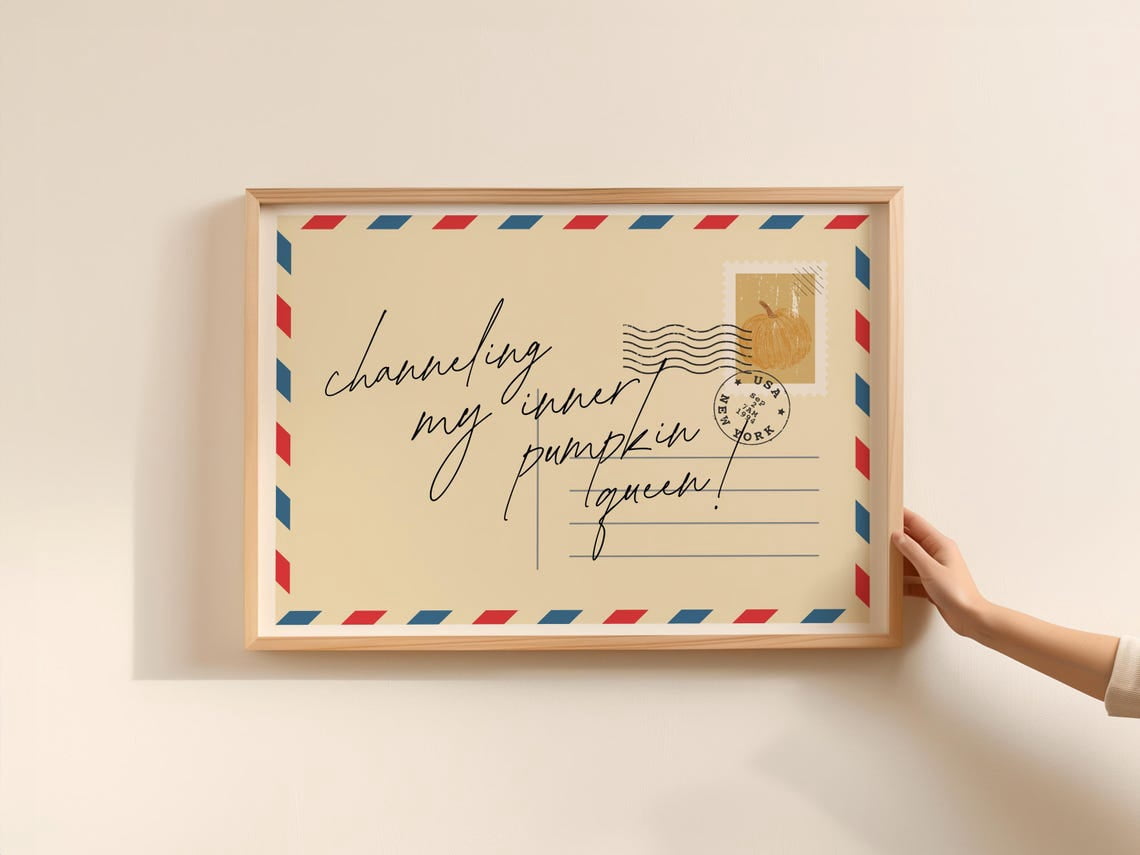 channeling
my inner
pumpkin
queen!
USA
Sep
2
7AM
1994
NEW YORK